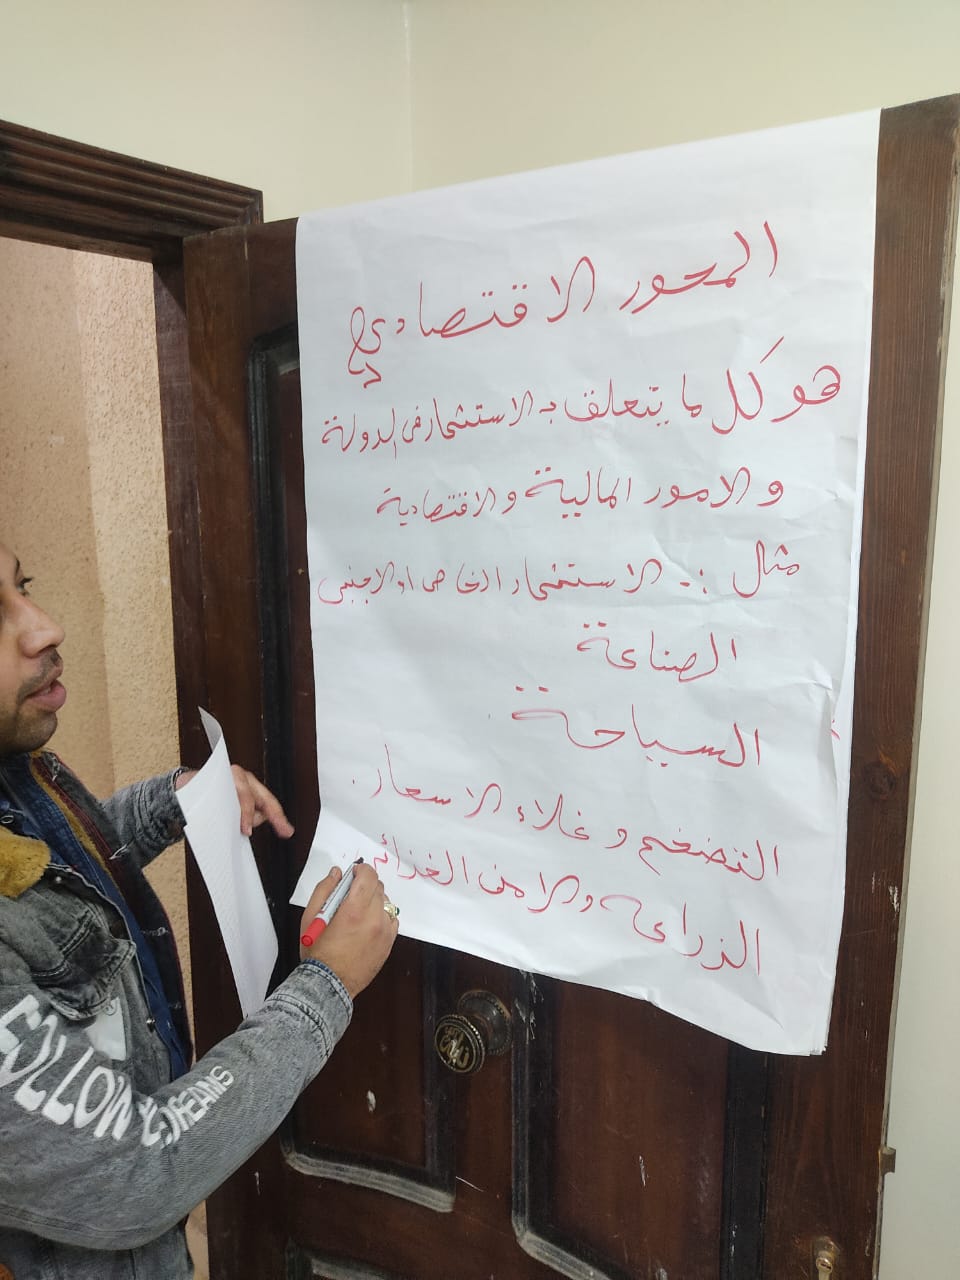 المحور الاقتصادي
هو كل ما يتعلق بـ الاستثمار في الدولة
والامور المالية والاقتصادية
مثال :- الاستثمار الخاص او الاجنبي
الصناعة
السياحة
التضخم وغلاء الاسعار.
الزراعة والامن الغذائي
FOLLOW
DREAMS